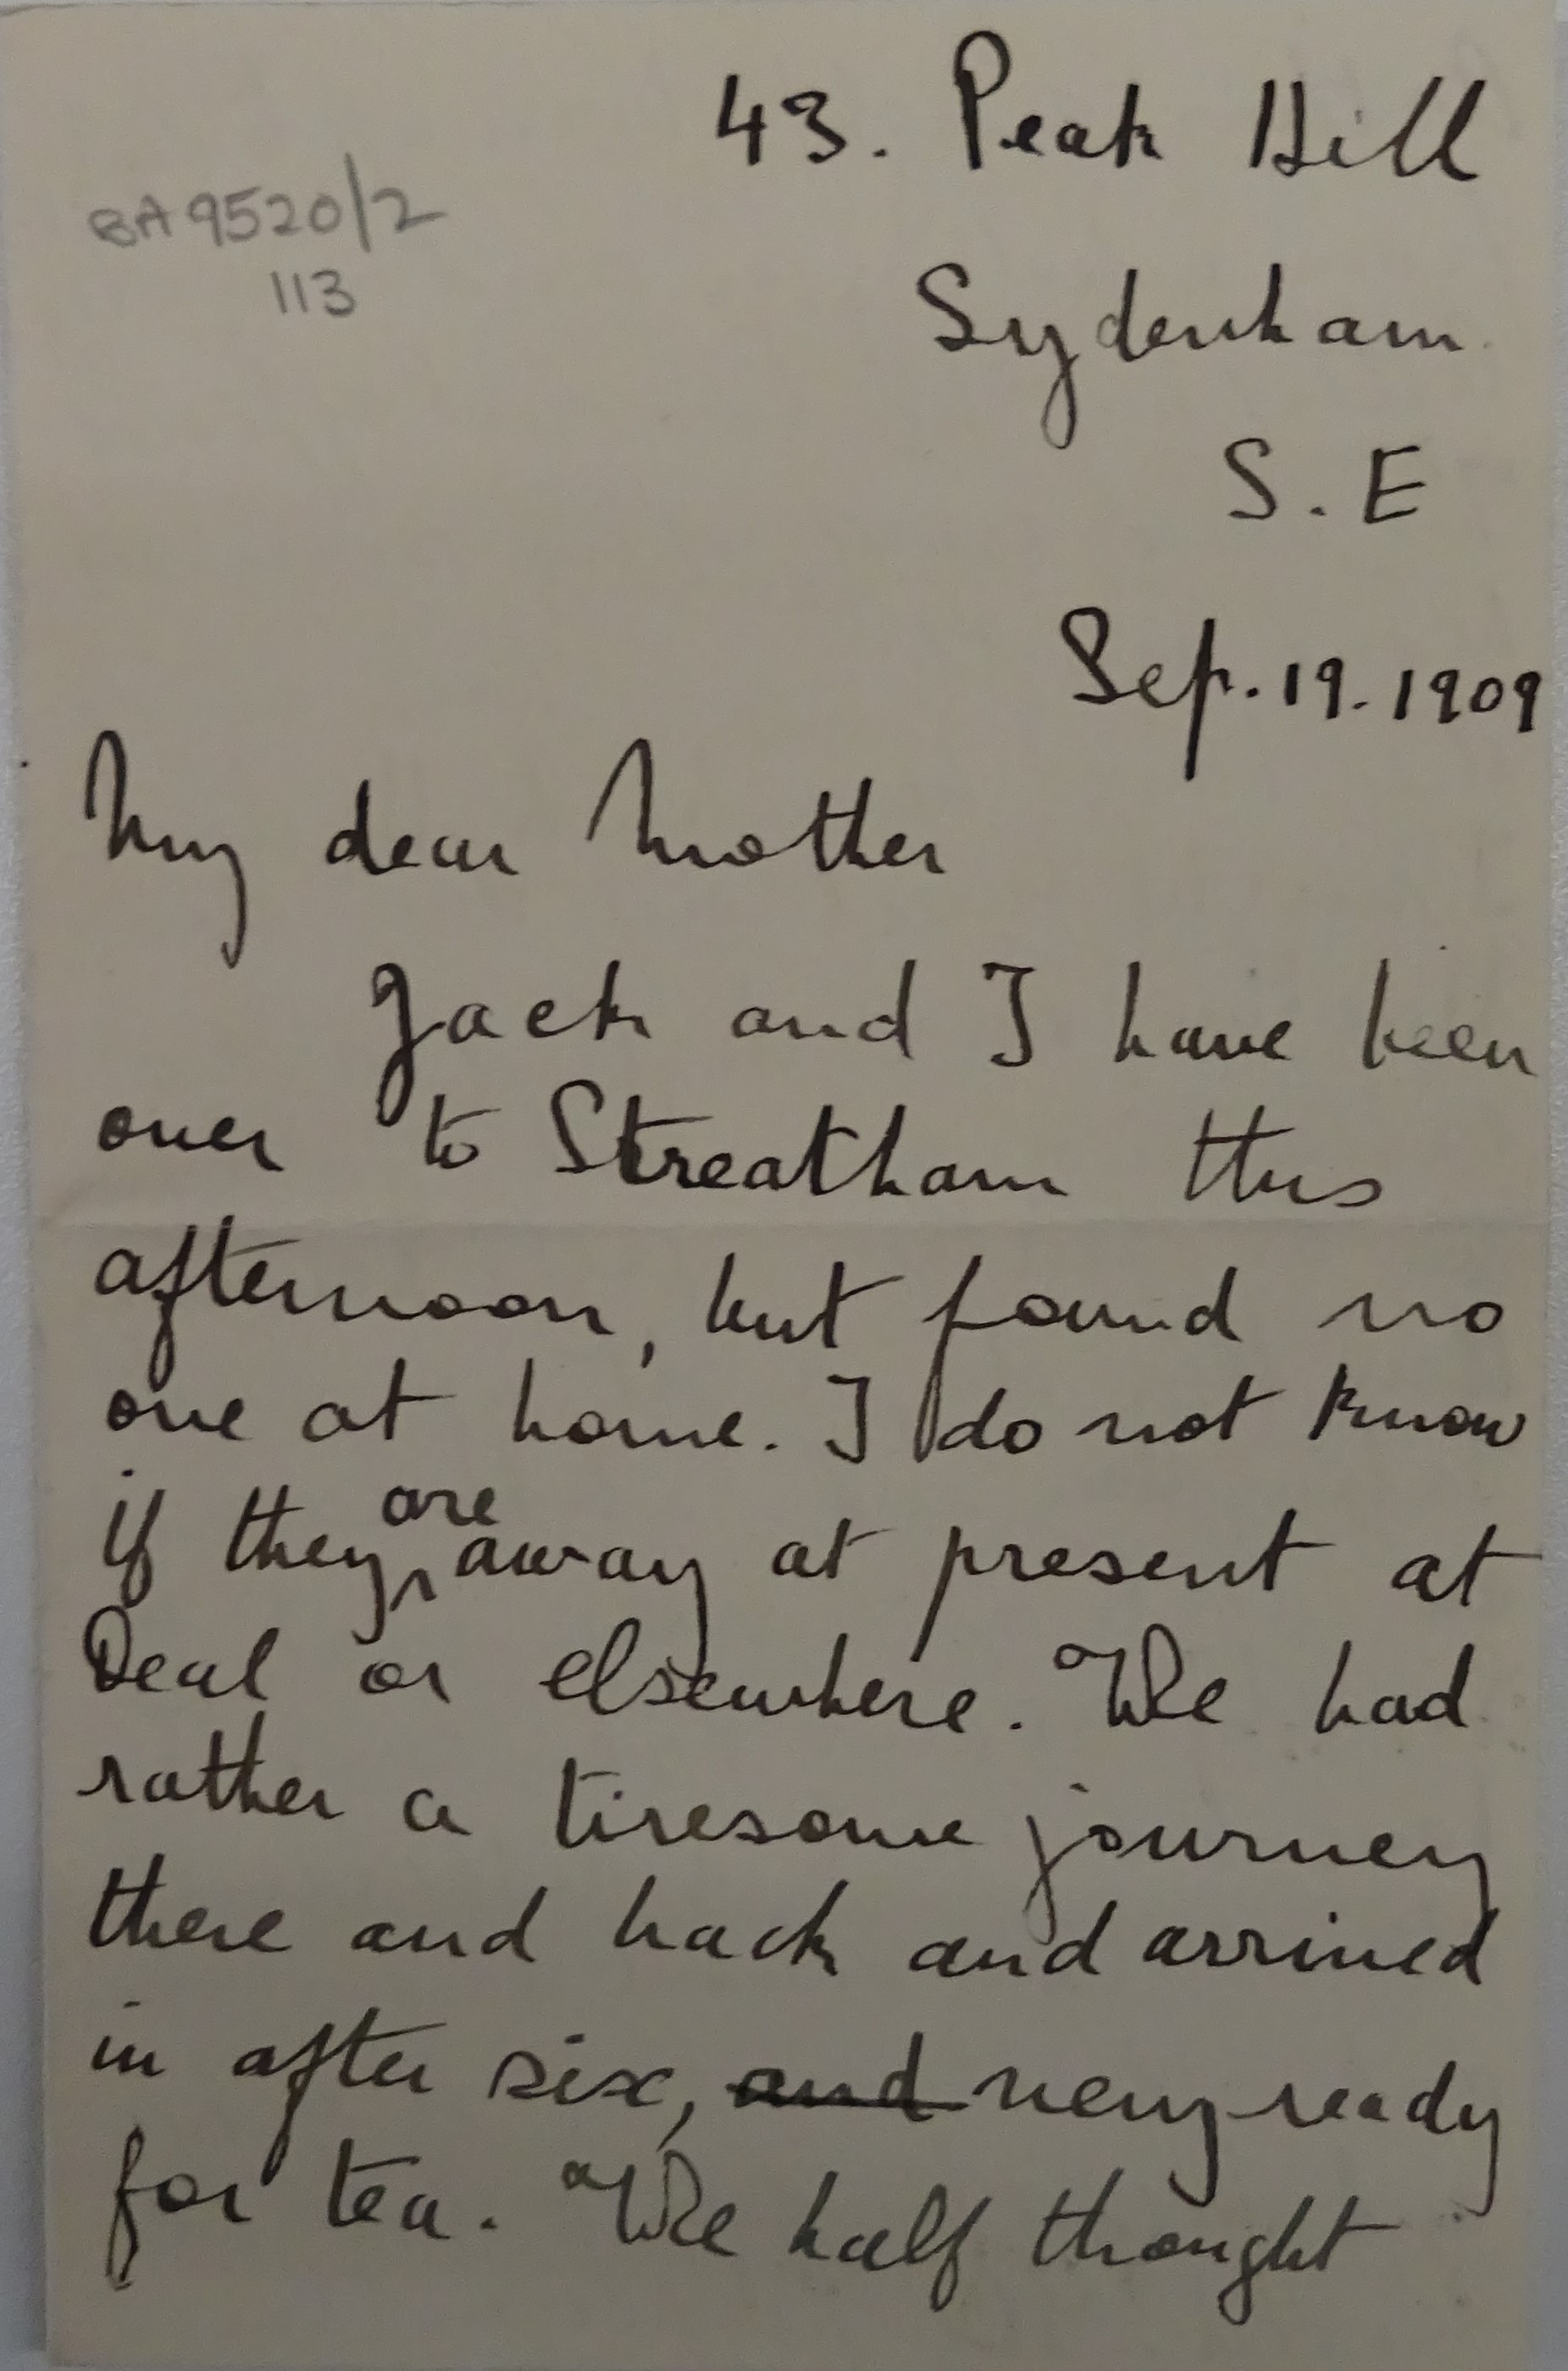 43. Peak Hill
BA9520/2
113
Sydenham
S. E
Sep. 19. 1909
My dear Mother
Jack and I have been
over to Streatham this
afternoon, but found no
one at home. I do not know
if they are away at present at
Deal or elsewhere. We had
rather a tiresome journey
there and back and arrived
in after six, and very ready
for tea. We half thought